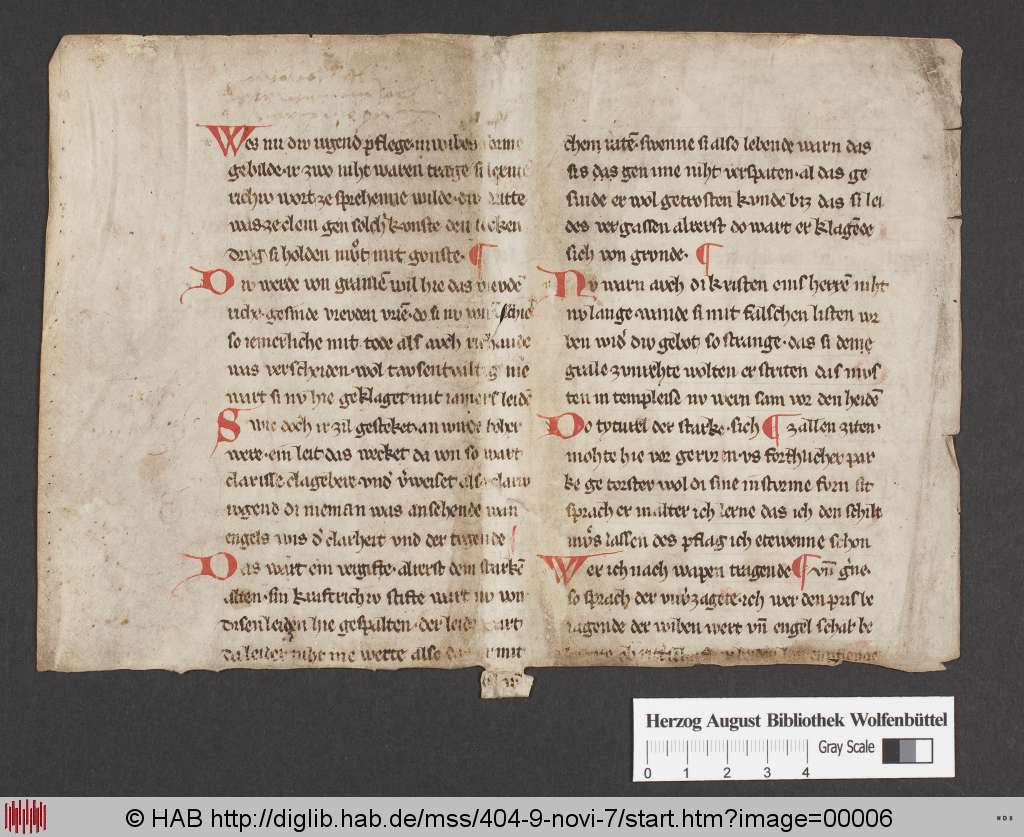 Wes nu div iugend pflege in wibes
gebilde ir zwo niht waren trage si
richiv wort ze sprehenne wilde div dritte
was ze clein gen solch kunste den
trvg si holden mvͦt mit gonste. ¶
Div werde von gralen wil hie das
riche gesinde vrevden vrien do si nv
so iemerliche mit tode als avch richaude
was verscheiden wol tavsent nie
wart si nv hie geklaget mit iamers leiden
Swie doch ir zil gestecket an wirde
were ein leit das wecket da von so wart
clarisse clagebere vnd also clariv
iugend di nieman was ansehende wan
engels wis der clarheit vnd der tugende
Das wart ein vergifte alrerst dem starken
alten sin kraftrichiv stifte wart nv von
disen leiden hie gespalten der wart
niht me wette also mit
chem raten swenne si also lebende warn das
sis das gen ime niht verspaten al das ge
sinde er wol getrosten kvnde biz das si lei
des vergassen alrerst do wart er klagende
sich von grvnde. ¶
Nv warn avch di kristen eins herren niht
nv lange wande si mit falschen listen wr
ben wider div gebot so strange das si deme
grale zvnrehte wolten er striten das mvs
ten in templeise nv wern sam vor den heiden
Do tyturel der starke sich ¶ zallen ziten
mohte hie vor gervren vs forhtlicher par
ke ge torster wol di sine in stvrme fvrn sit
sprach er in alter ich lerne das ich den schilt
mvͦs lassen des pflag ich etewenne schon
Wer ich nach wapen tragende ¶
so sprach der vnverzagete ich wer den pris be
iagende der wiben wert vnd engel schar be
Herzog August Bibliothek Wolfenbüttel
0 1 2 3 4 Gray Scale
© HAB http://diglib.hab.de/mss/404-9-novi-7/start.htm?image=00006